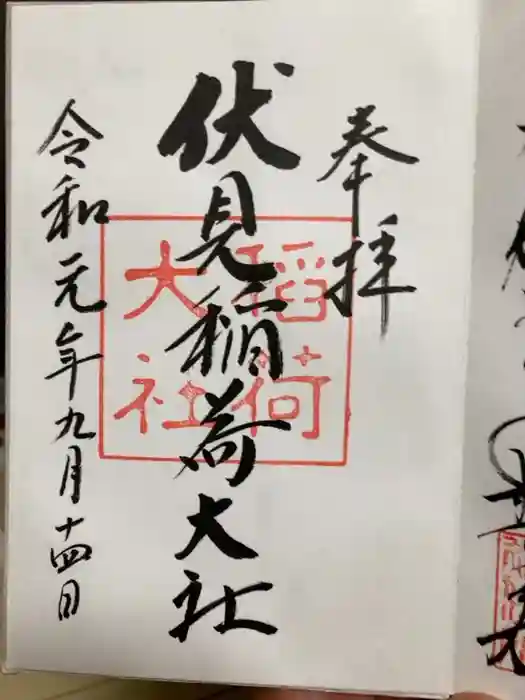 奉拝
伏見稲荷大社
稲荷
大社
令和元年九月十四日